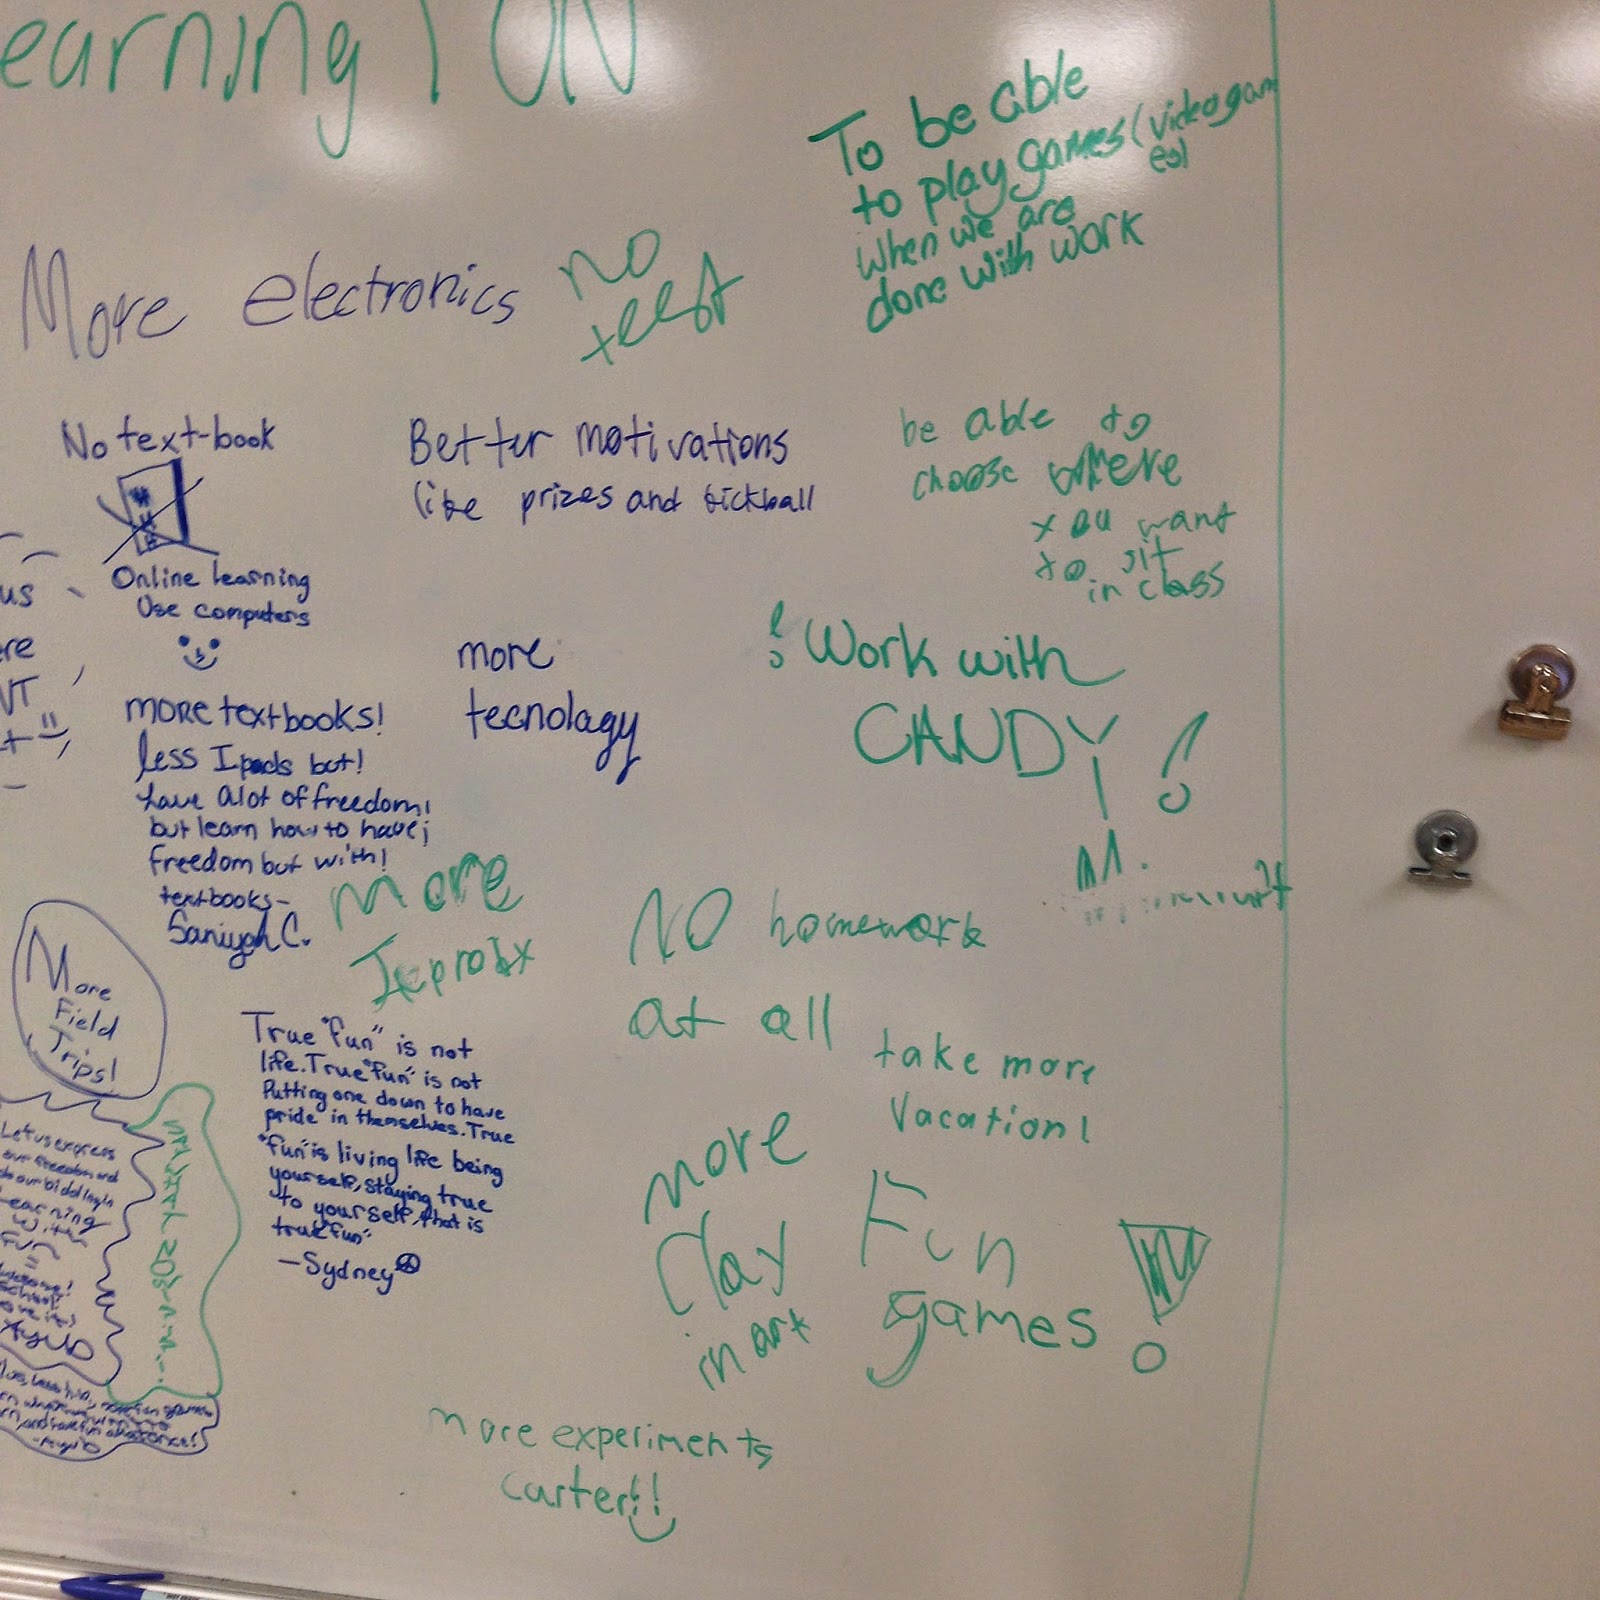 earning fun
To be able
to play games (videogam
es)
when we are
done with work
More electronics
no
test
No text-book
Online learning
Use computers
Better motivations
like prizes and kickball
be able to
choose where
you want
to sit
in class
us
ere
more
tecnolagy
! Work with
CANDY!
MORE textbooks!
less Ipads but!
have alot of freedom!
but learn how to have;
freedom but with!
textbooks-
Saniyah C.
More
NO homework
at all
More
Field
Trips!
True "fun" is not
life. True "fun" is not
Putting one down to have
pride in themselves. True
"fun" is living life being
yourself, staying true
to yourself, that is
true "fun"
-Sydney
take more
Vacation!
more
Clay
in art
Fun
games!
Let us express
our freedom and
Learning
with
Fun
more experiments
carter!!